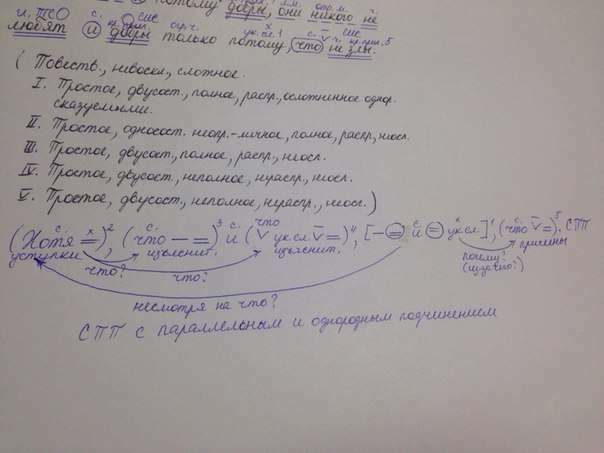 потому добры, они никого не
любят и добры только потому, что не злы.
(Повеств., невоскл., сложное.
I. Простое, двусост., полное, распр., осложненное однор.
сказуемыми.
II. Простое, односост. неопр.-личное, полное, распр., неосл.
III. Простое, двусост., полное, распр., неосл.
IV. Простое, двусост., неполное, нераспр., неосл.
V. Простое, двусост., неполное, нераспр., неосл.)
(Хотя =)², (что — =)³ и (что ук.сл. =)⁴, [— = и = ук.сл.]¹, (что =)⁵. СПП
уступки изъяснит. изъяснит. причины
что? что? почему?
несмотря на что?
СПП с параллельным и однородным подчинением